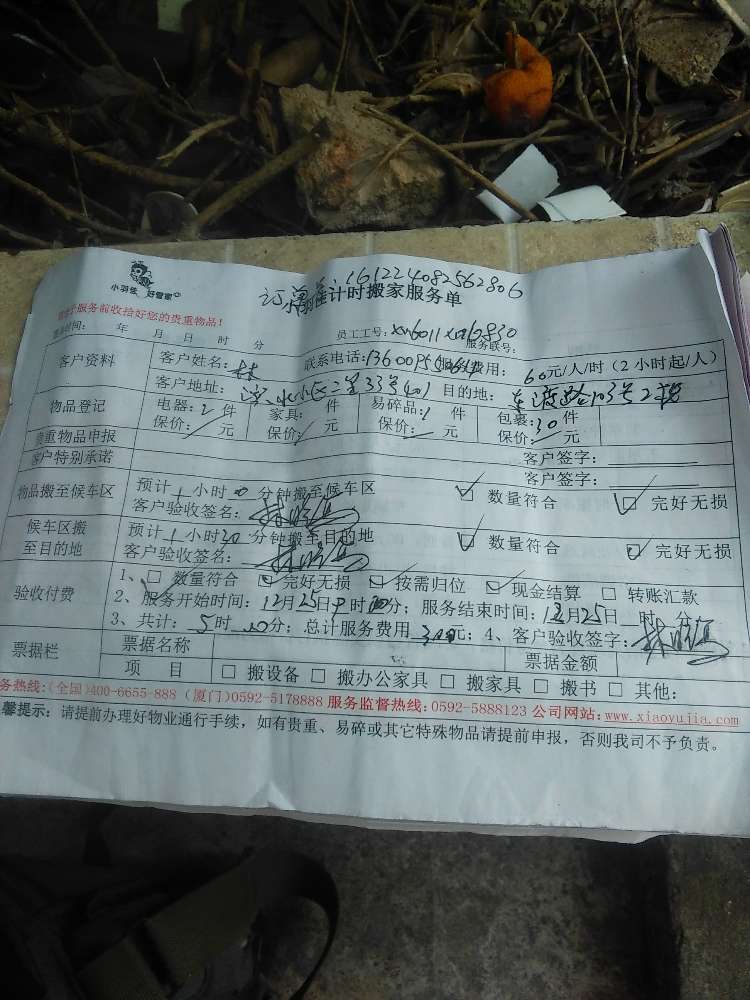 小羽佳 好管家
161224082562806
计时搬家服务单
服务前收拾好您的贵重物品!
时间: 年 月 日 时 分 员工工号: 服务联号:
客户资料 客户姓名:林 联系电话: 费用:60元/人/时(2小时起/人)
客户地址: 小区二里33号401 目的地:东渡路103号
物品登记 电器:2件 家具: 件 易碎品:1件 包裹:30件
保价: 元 保价: 元 保价: 元 保价: 元
贵重物品申报 客户签字:
客户特别承诺 客户签字:
物品搬至候车区 预计1小时0分钟搬至候车区 ☑ 数量符合 ☑ 完好无损
客户验收签名:
候车区搬至目的地 预计1小时30分钟搬至目的地 ☑ 数量符合 ☑ 完好无损
客户验收签名:
验收付费 1、□ 数量符合 ☑ 完好无损 ☑ 按需归位 ☑ 现金结算 □ 转账汇款
2、服务开始时间:12月25日9时00分;服务结束时间:12月25日 时 分
3、共计:5时00分;总计服务费用300元;4、客户验收签字:
票据栏 票据名称 票据金额
项 目 □ 搬设备 □ 搬办公家具 □ 搬家具 □ 搬书 □ 其他:
务热线:(全国)400-6655-888 (厦门)0592-5178888 服务监督热线:0592-5888123 公司网站:www.xiaoyujia.com
馨提示:请提前办理好物业通行手续,如有贵重、易碎或其它特殊物品请提前申报,否则我司不予负责。